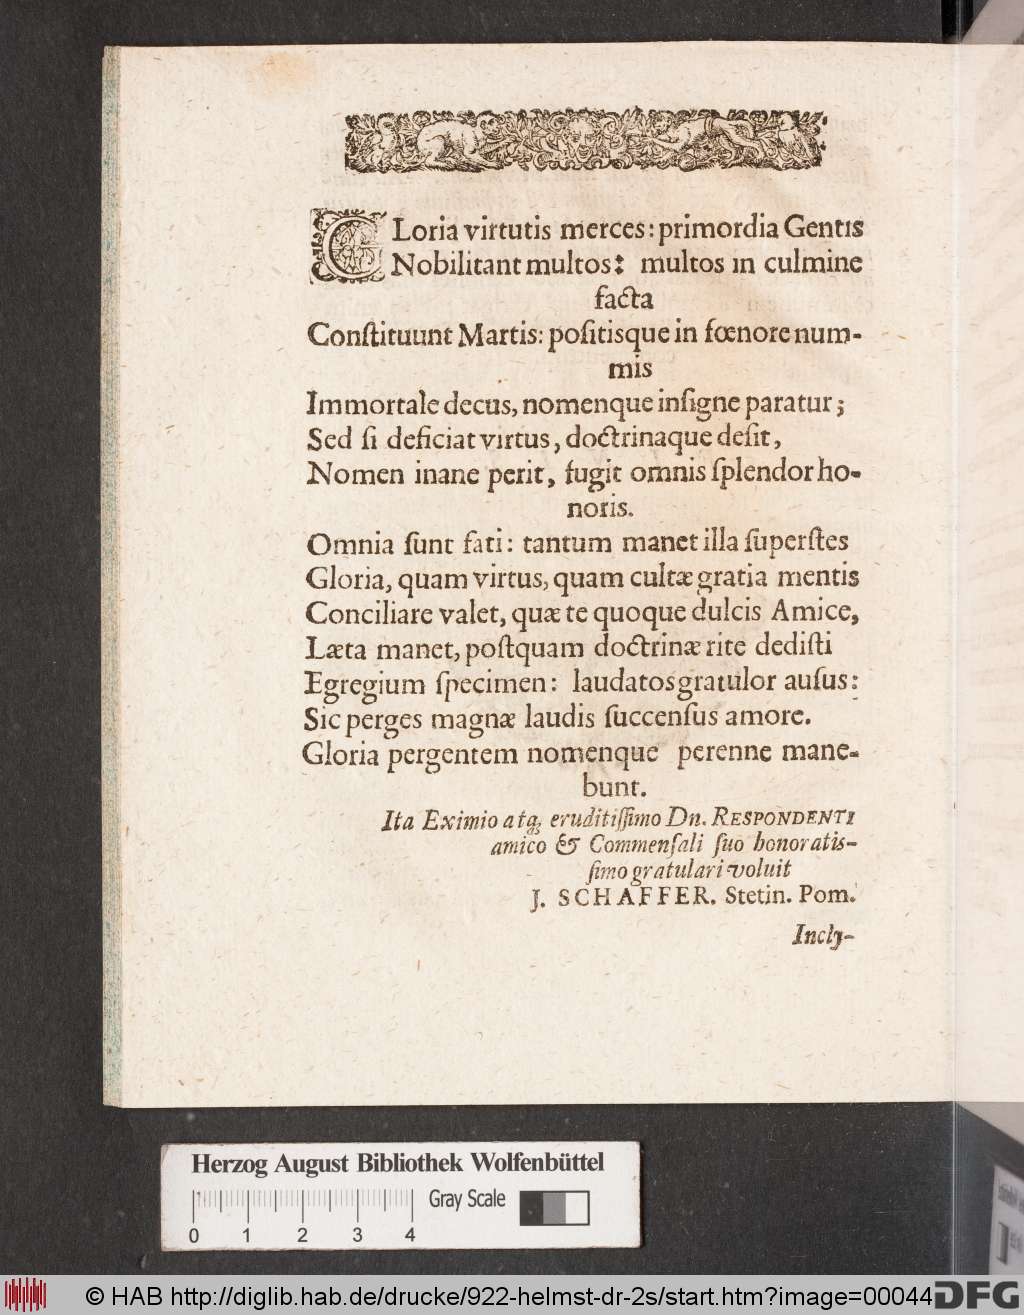 GLoria virtutis merces: primordia Gentis
Nobilitant multos: multos in culmine
facta
Conſtituunt Martis: poſitisque in fœnore num-
mis
Immortale decus, nomenque inſigne paratur;
Sed ſi deficiat virtus, doctrinaque deſit,
Nomen inane perit, fugit omnis ſplendor ho-
noris.
Omnia ſunt fati: tantum manet illa ſuperſtes
Gloria, quam virtus, quam cultæ gratia mentis
Conciliare valet, quæ te quoque dulcis Amice,
Læta manet, poſtquam doctrinæ rite dediſti
Egregium ſpecimen: laudatos gratulor auſus:
Sic perges magnæ laudis ſuccenſus amore.
Gloria pergentem nomenque perenne mane-
bunt.
Ita Eximio atq; eruditiſſimo Dn. RESPONDENTI
amico & Commenſali ſuo honoratiſ-
ſimo gratulari voluit
J. SCHAFFER. Stetin. Pom.
Incly-
Herzog August Bibliothek Wolfenbüttel
Gray Scale
0 1 2 3 4
© HAB http://diglib.hab.de/drucke/922-helmst-dr-2s/start.htm?image=00044
DFG